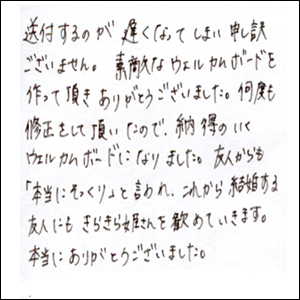 送付するのが 遅くなってしまい 申し訳
ございません。 素敵なウェルカムボードを
作って頂きありがとうございました。何度も
修正をして頂いたので、納得のいく
ウェルカムボードになりました。友人からも
「本当にそっくり」と言われ、これから結婚する
友人にもきらきら姫さんを勧めていきます。
本当にありがとうございました。